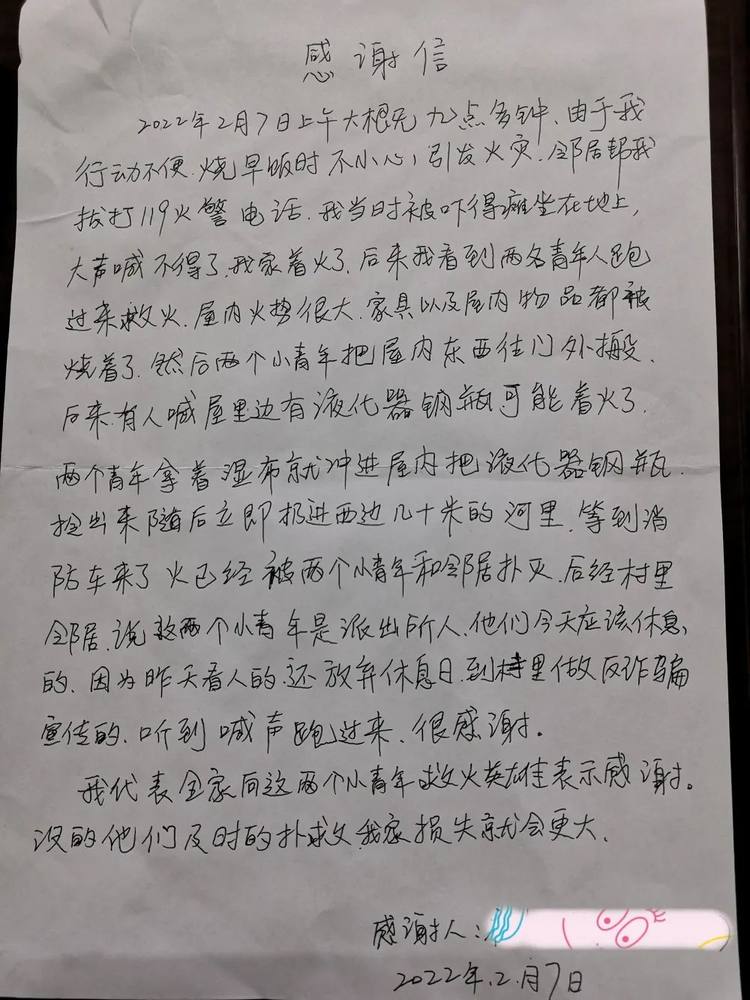 感谢信
2022年2月7日上午大概无九点多钟、由于我
行动不便.烧早饭时不小心,引发火灾.邻居帮我
拔打119火警电话.我当时被吓得瘫坐在地上,
大声喊不得了,我家着火了.后来我看到两名青年人跑
过来救火.屋内火势很大.家具以及屋内物品都被
烧着了.然后两个小青年把屋内东西往门外搬.
后来有人喊屋里边有液化器钢瓶可能着火了.
两个青年拿着湿布就冲进屋内把液化器钢瓶.
抢出来随后立即扔进西边几十米的河里.等到消
防车来了火已经被两个小青年和邻居扑灭.后经村里
邻居.说这两个小青年是派出所人.他们今天应该休息
的.因为昨天看人的.还放弃休息日.到村里做反诈骗
宣传的.听到喊声跑过来、很感谢。
我代表全家向这两个小青年救火英雄表示感谢。
没的他们及时的扑救我家损失就会更大.
感谢人:
2022年.2.月7日